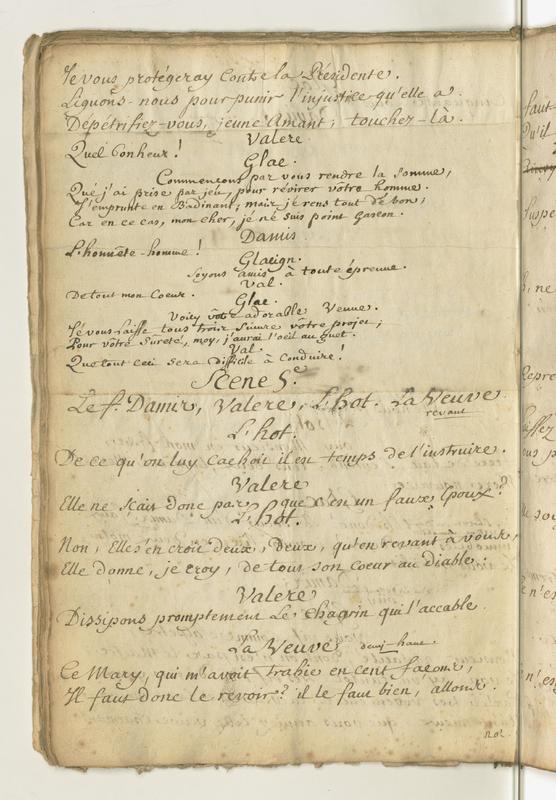 Je vous protégeray contre la Présidente.
Liguons-nous pour punir l'injustice qu'elle a.
Dépétrifiez-vous, jeune Amant; touchez-là.
Valere
Quel bonheur!
Glac.
Commencons par vous rendre la somme,
Que j'ai prise par jeu, pour révirer votre homme.
J'emprunte en badinant, mais je rens tout de bon;
Car en ce cas, mon cher, je ne suis point Gascon.
Damis
L'honnête-homme!
Glacign.
Soyons amis à toute épreuve.
Val.
De tout mon Coeur.
Glac.
Voicy vôtre adorable Veuve.
Je vous laisse tous trois suivre vôtre projet;
Pour vôtre sureté, moy, j'aurai l'oeil au guet.
Val.
Que tout ceci sera difficile à conduire!
Scene 5.e
Le f. Damis, Valere, L'hot. La Veuve
revant
L'hot.
De ce qu'on luy cachoit il est temps de l'instruire.
Valere
Elle ne scait donc pas que c'est un faux Epoux?
L'hot.
Non, Elle s'en croit deux, Deux, qu'en revant à vous,
Elle donne, je croy, de tous son coeur au diable.
Valere
Dissipons promptement Le chagrin qui l'accable.
La Veuve demi-haut
Ce Mary, qui m'avoit trahie en cent facons,
Il faut donc le revoir? il le faut bien, allons.
faut
qu'il